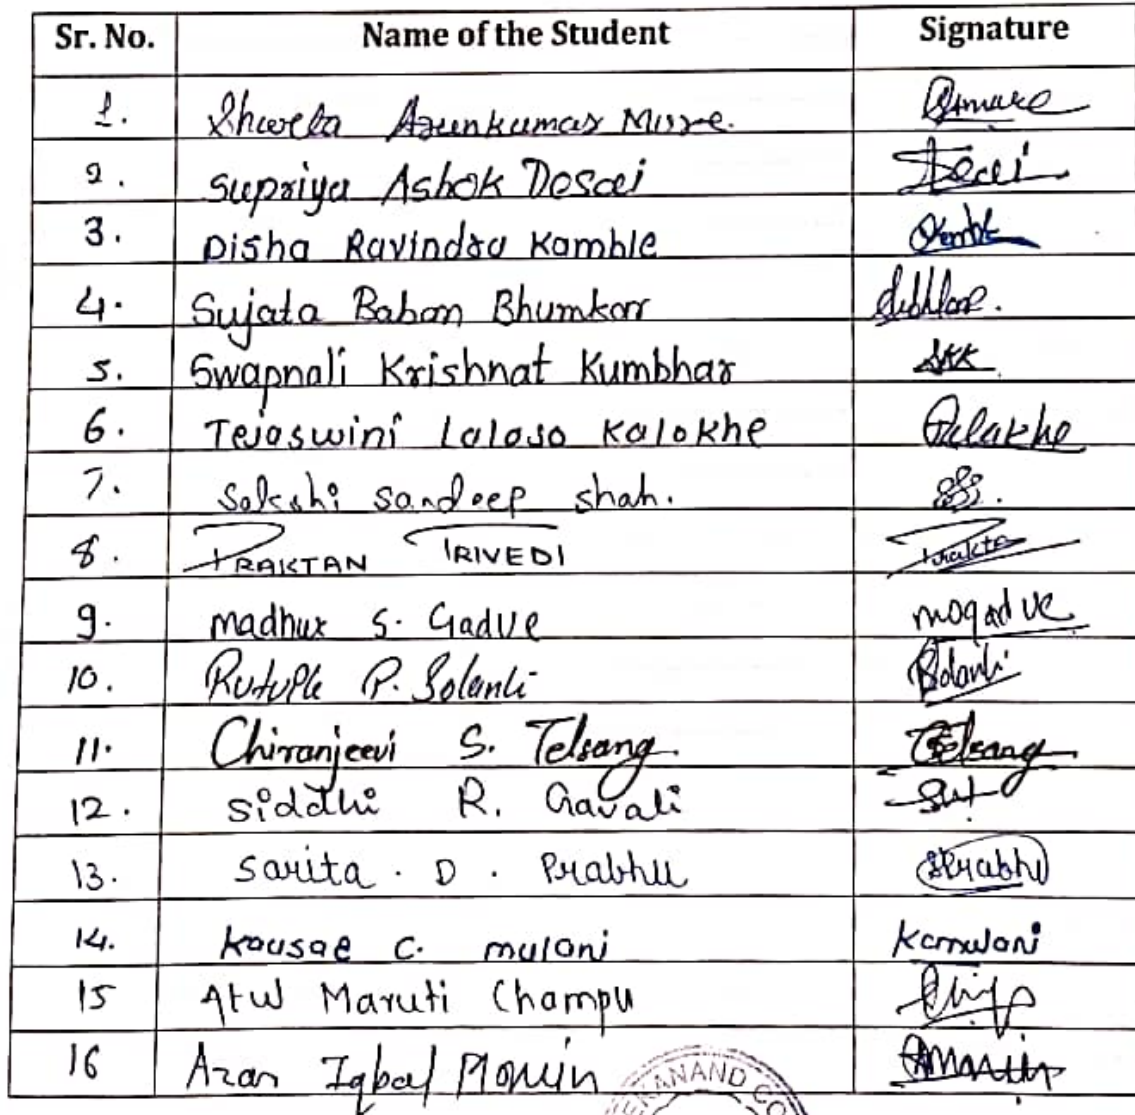 Sr. No. Name of the Student Signature
1. Shweta Arunkumar More.
2. Supriya Ashok Desai Desai
3. Disha Ravindra Kamble Kamble
4. Sujata Baban Bhumkar
5. Swapnali Krishnat Kumbhar SKK
6. Tejaswini Laloso Kalokhe
7. Sakshi sandeep shah.
8. PRAKTAN TRIVEDI Prakta
9. madhur S. Gadve mogadve
10. P. Solanki Solanki
11. Chiranjeevi S. Telsang. Telsang
12. Siddhi R. Gavali
13. Sarita. D. Prabhu
14. kausar C. mulani Kcmulani
15 Atul Maruti Champu
16 Azan Iqbal Momin AMomin